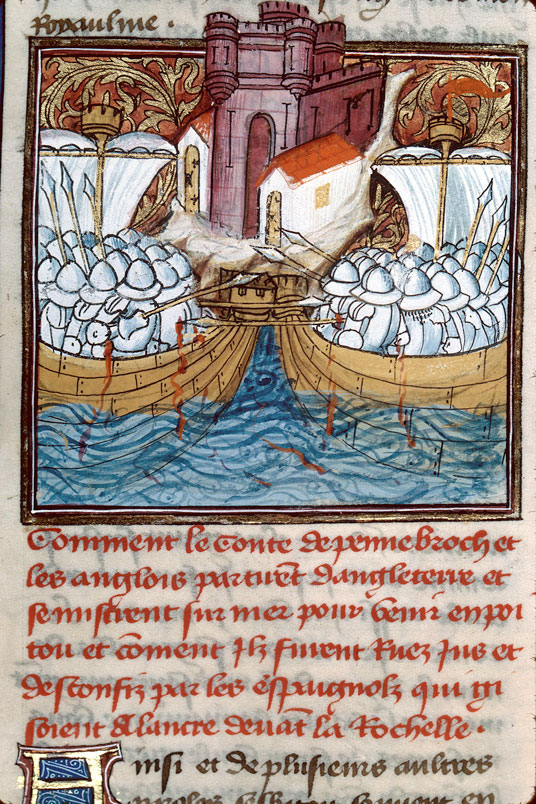 royaulme .
Comment le conte de pennebroch et
les anglois partirēt dangleterre et
se mistrent sur mer pour venir en poi
tou et cōment Ilz furent Ruez Jus et
desconfiz par les espaignolz qui gi
soient a lancre deuāt la Rochelle .
Ainsi et de plusieurs aultres